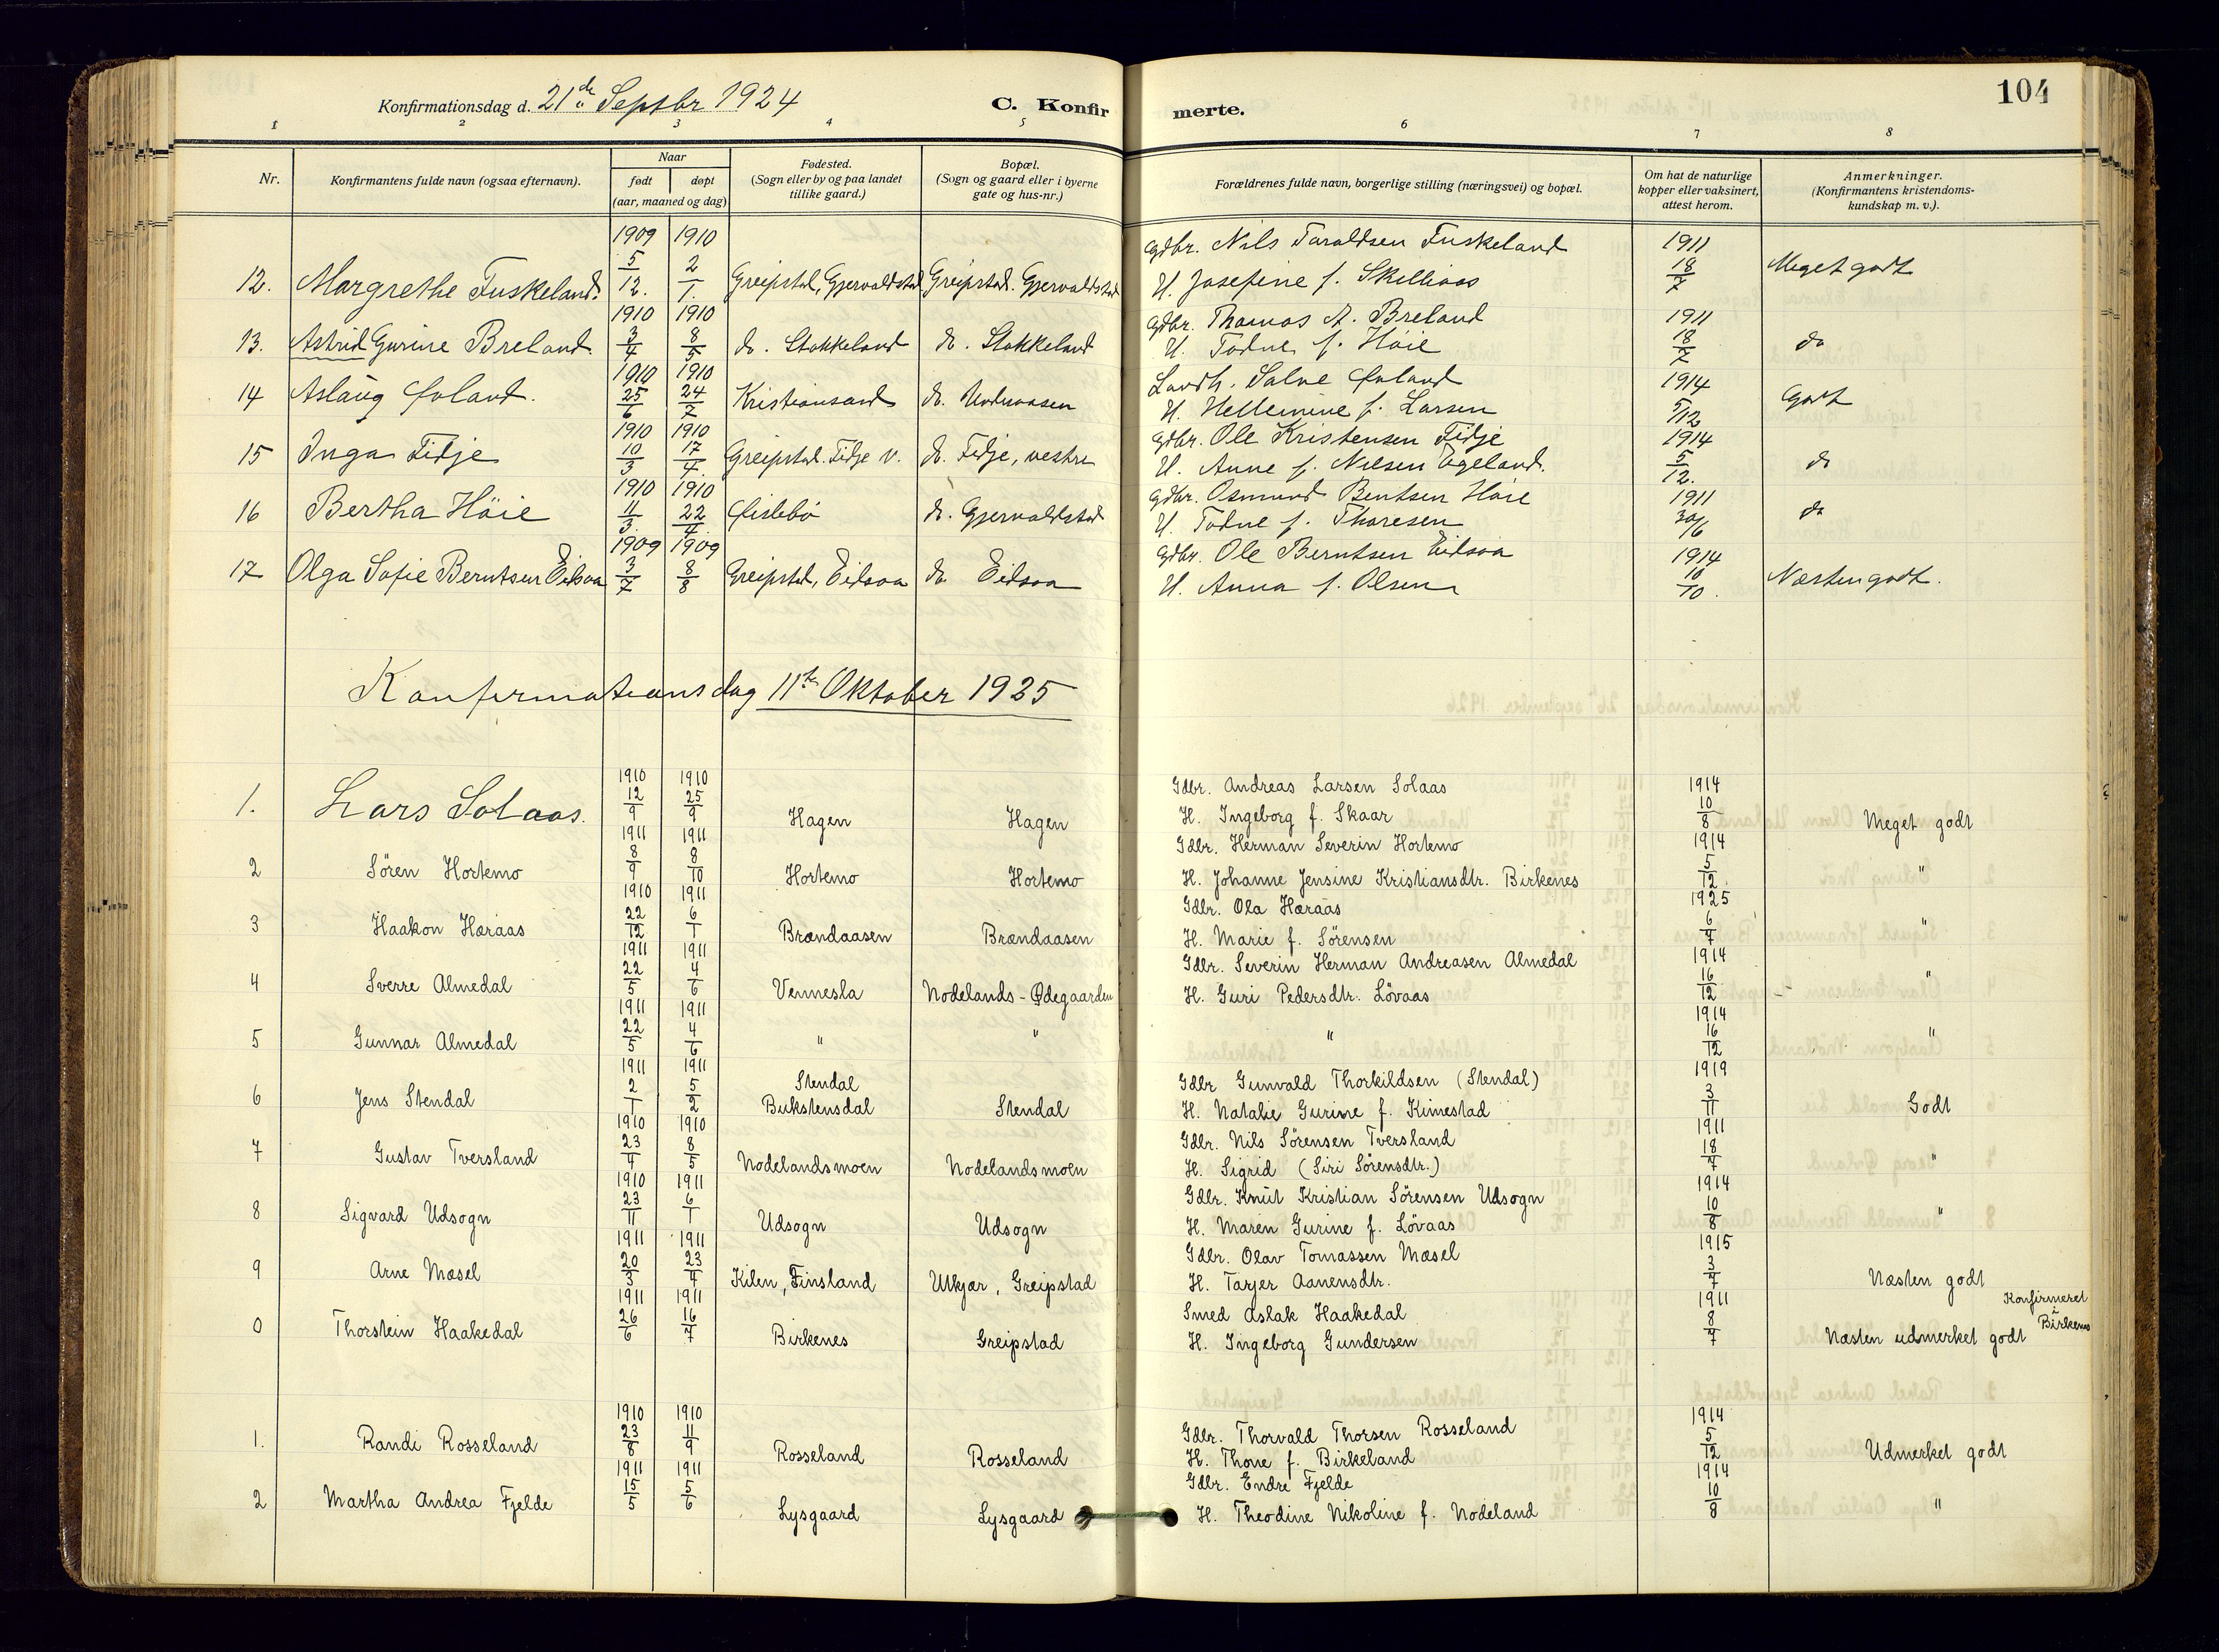 104
Konfirmationsdag d. 21de Septbr 1924
C. Konfirmerte.
1 2 3 4 5 6 7 8
Nr.
Konfirmantens fulde navn (ogsaa efternavn).
Naar
født døpt
(aar, maaned og dag)
Fødested.
(Sogn eller by og paa landet
tillike gaard.)
Bopæl.
(Sogn og gaard eller i byerne
gate og hus-nr.)
Forældrenes fulde navn, borgerlige stilling (næringsvei) og bopæl.
Om hat de naturlige
kopper eller vaksinert,
attest herom.
Anmerkninger.
(Konfirmantens kristendoms-
kundskap m. v.).
1909 1910 Gdbr. Nils Taraldsen Fuskeland 1911
12. Margrethe Fuskeland. 5/12. 2/1. Greipstad, Gjervoldstad Greipstad. Gjervoldstad H. Josefine f. Skelliaas 18/7 Meget godt
1910 1910 Gdbr. Thomas A. Breland 1911
13. Astrid Gurine Breland. 3/4 8/5 do. Stokkeland do. Stokkeland H. Todne f. Höie 18/7 do
1910 1910 Landh. Salve Øvland 1914
14 Aslaug Øvland. 25/6 24/7 Kristiansand do. H. Hellemine f. Larsen 5/12 Godt
1910 1910 Gdbr. Ole Kristensen Fidje 1914
15 Inga Fidje 10/3 17/4. Greipstad. Fidje v. do. Fidje, vestre H. Anne f. Nilsen Egeland. 5/12. do
1910 1910 Gdbr. Osmund Bentsen Höie 1911
16 Bertha Höie 11/3. 22/4 Øislebö do. Gjervoldstad H. Todne f. Thoresen 30/6 do
1909 1909 Gdbr. Ole Berntsen Eidsaa 1914
17 Olga Sofie Berntsen Eidsaa 3/7 8/8 Greipstad, Eidsaa do Eidsaa H. Anna f. Olsen 10/10. Næsten godt.
Konfirmationsdag 11te Oktober 1925
1910 1910 Gdbr. Andreas Larsen Solaas 1914
1. Lars Solaas. 12/9 25/9 Hagen Hagen H. Ingeborg f. Skaar 10/8 Meget godt
1911 1911 Gdbr. Herman Severin Hortemo 1914
2 Sören Hortemo 8/9 8/10 Hortemo Hortemo H. Johanne Jensine Kristiansdtr. Birkenes 5/12 "
1910 1911 Gdbr. Ola Hæraas 1925
3 Haakon Hæraas 22/12 6/1 Brændaasen Brændaasen H. Marie f. Sörensen 6/7 "
1911 1911 Gdbr. Severin Herman Andreasen Almedal 1914
4 Sverre Almedal 22/5 4/6 Vennesla Nodelands-Ødegaarden H. Guri Pedersdtr. Lövaas 16/12 "
1911 1911 1914
5 Gunnar Almedal 22/5 4/6 " " " 16/12 "
1911 1911 Stendal Gdbr Gunvald Thorkildsen (Stendal) 1919
6 Jens Stendal 2/1 5/2 Bukstensdal Stendal H. Natalie Gurine f. Kimestad 3/11 Godt
1910 1910 Gdbr. Nils Sörensen Tversland 1911
7 Gustav Tversland 23/4 8/5 Nodelandsmoen Nodelandsmoen H. Sigrid (Siri Sörensdtr.) 18/7 "
1910 1911 Gdbr. Knut Kristian Sörensen Udsogn 1914
8 Sigvard Udsogn 23/11 6/1 Udsogn Udsogn H. Maren Gurine f. Lövaas 10/8 "
1911 1911 Gdbr. Olav Tomassen Mæsel 1915
9 Arne Mæsel 20/3 23/4 Kilen, Finsland Utkjær, Greipstad H. Tarjer Aanensdtr. 3/7 Næsten godt
1911 1911 Smed Aslak Haakedal 1911 Konfirmeret
0 Thorstein Haakedal 26/6 16/7 Birkenes Greipstad H. Ingeborg Gundersen 8/7 Næsten udmerket godt i Birkenes
1910 1910 Gdbr. Thorvald Thorsen Rosseland 1914
1. Randi Rosseland 23/8 11/9 Rosseland Rosseland H. Thone f. Birkeland 5/12 Udmerket godt
1911 1911 Gdbr. Endre Fjelde 1914
2 Martha Andrea Fjelde 15/5 5/6 Lysgaard Lysgaard H. Theodine Nikoline f. Nodeland 10/8 "